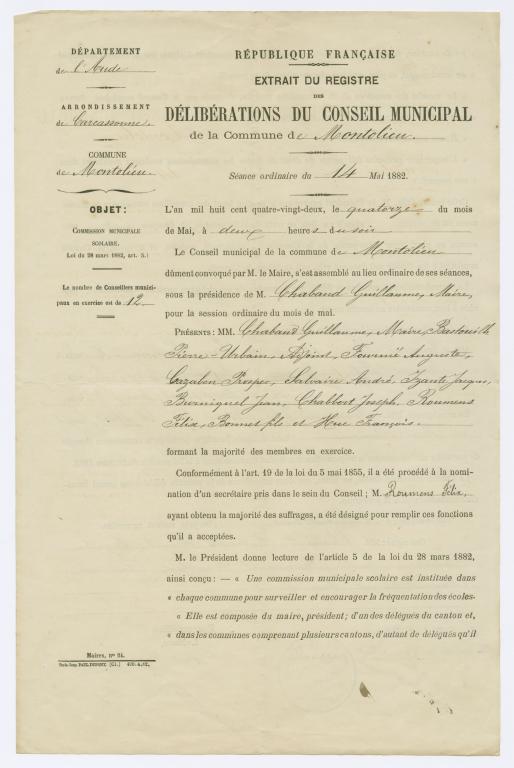 DÉPARTEMENT
de l'Aude
ARRONDISSEMENT
de Carcassonne.
COMMUNE
de Montolieu.
OBJET :
COMMISSION MUNICIPALE
SCOLAIRE.
Loi du 28 mars 1882, art. 5.)
Le nombre de Conseillers munici-
paux en exercice est de 12.
RÉPUBLIQUE FRANÇAISE
EXTRAIT DU REGISTRE
DES
DÉLIBÉRATIONS DU CONSEIL MUNICIPAL
de la Commune de Montolieu.
Séance ordinaire du 14 Mai 1882.
L'an mil huit cent quatre-vingt-deux, le quatorze du mois
de Mai, à deux heures du soir
Le Conseil municipal de la commune de Montolieu
dûment convoqué par M. le Maire, s'est assemblé au lieu ordinaire de ses séances,
sous la présidence de M. Chabaud Guillaume, Maire,
pour la session ordinaire du mois de mai.
PRÉSENTS : MM. Chabaud Guillaume, Maire,
Pierre-Urbain, Adjoint, Fournié Auguste,
Cazaben Prosper, Salvaire André, Izante Jacques,
Jean, Chabbert Joseph, Roumens
Félix, Bonnet fils et Huc François.
formant la majorité des membres en exercice.
Conformément à l'art. 19 de la loi du 5 mai 1855, il a été procédé à la nomi-
nation d'un secrétaire pris dans le sein du Conseil ; M. Roumens Félix,
ayant obtenu la majorité des suffrages, a été désigné pour remplir ces fonctions
qu'il a acceptées.
M. le Président donne lecture de l'article 5 de la loi du 28 mars 1882,
ainsi conçu : — « Une commission municipale scolaire est instituée dans
« chaque commune pour surveiller et encourager la fréquentation des écoles.
« Elle est composée du maire, président; d'un des délégués du canton et,
« dans les communes comprenant plusieurs cantons, d'autant de délégués qu'il
Maires, nº 94.
Paris.-Imp. PAUL DUPONT. (Cl.)